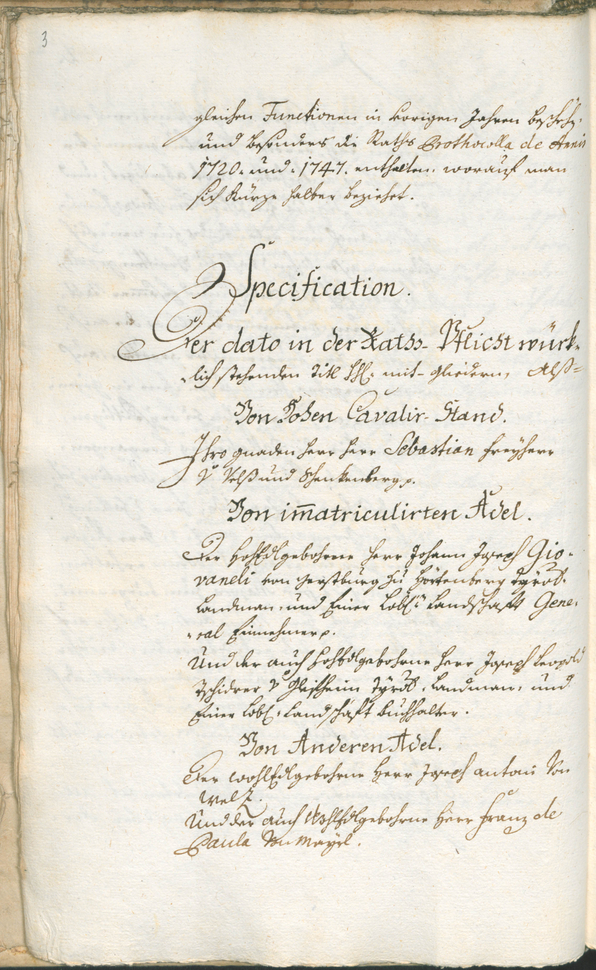 3
gleichen Functionen in vorigen Jahren beschehen,
und besonders die Raths Prothocolla de Annis
1720. und 1747. enthalten. worauf man
sich Kürze halber beziehet.
Specification.
Der dato in der Raths-Pflicht würk-
lich stehenden Titl. mit-gliedern, Alß
Von Hohen Cavalir-Stand.
Ihro gnaden herr herr Sebastian freyherr
v Velß und Schenkenberg p.
Von im̄atriculirten Adel.
Der HochEdlgebohrne herr Johann Joseph Gio-
vaneli von Gerstburg zu Hörtenberg Tyrol.
Landman und Einer Lobl: Landschafft Gene-
ral Einnehmer p.
Und der auch hochEdlgebohrne herr Joseph Leopold
Tschidrer v Gleifheim Tyrol. Landman, und
Einer Lobl. Landschafft Buchhalter.
Von Anderen Adel.
Der wohlEdlgebohrne Herr Joseph Antoni Von
Welz.
Und der auch WohlEdlgebohrne Herr Franz de
Paula Von Mayrl.